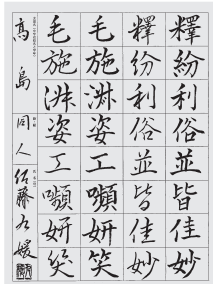 釋紛利俗並皆佳妙
釋紛利俗並皆佳妙
毛施淑姿工嚬妍笑
毛施淑姿工嚬妍笑
髙島 同人 佐藤